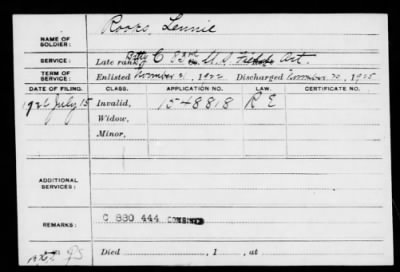 NAME OF SOLDIER: Rooks, Lennie
SERVICE: Late rank, Btty C 82nd U.S. Field Art.
TERM OF SERVICE: Enlisted November 21, 1922 Discharged November 20, 1925
DATE OF FILING. CLASS. APPLICATION NO. LAW. CERTIFICATE NO.
1926 July 15 Invalid, 1548818 R E
Widow,
Minor,
ADDITIONAL SERVICES:
REMARKS: C 880 444 COMBINED
Died , 1 , at